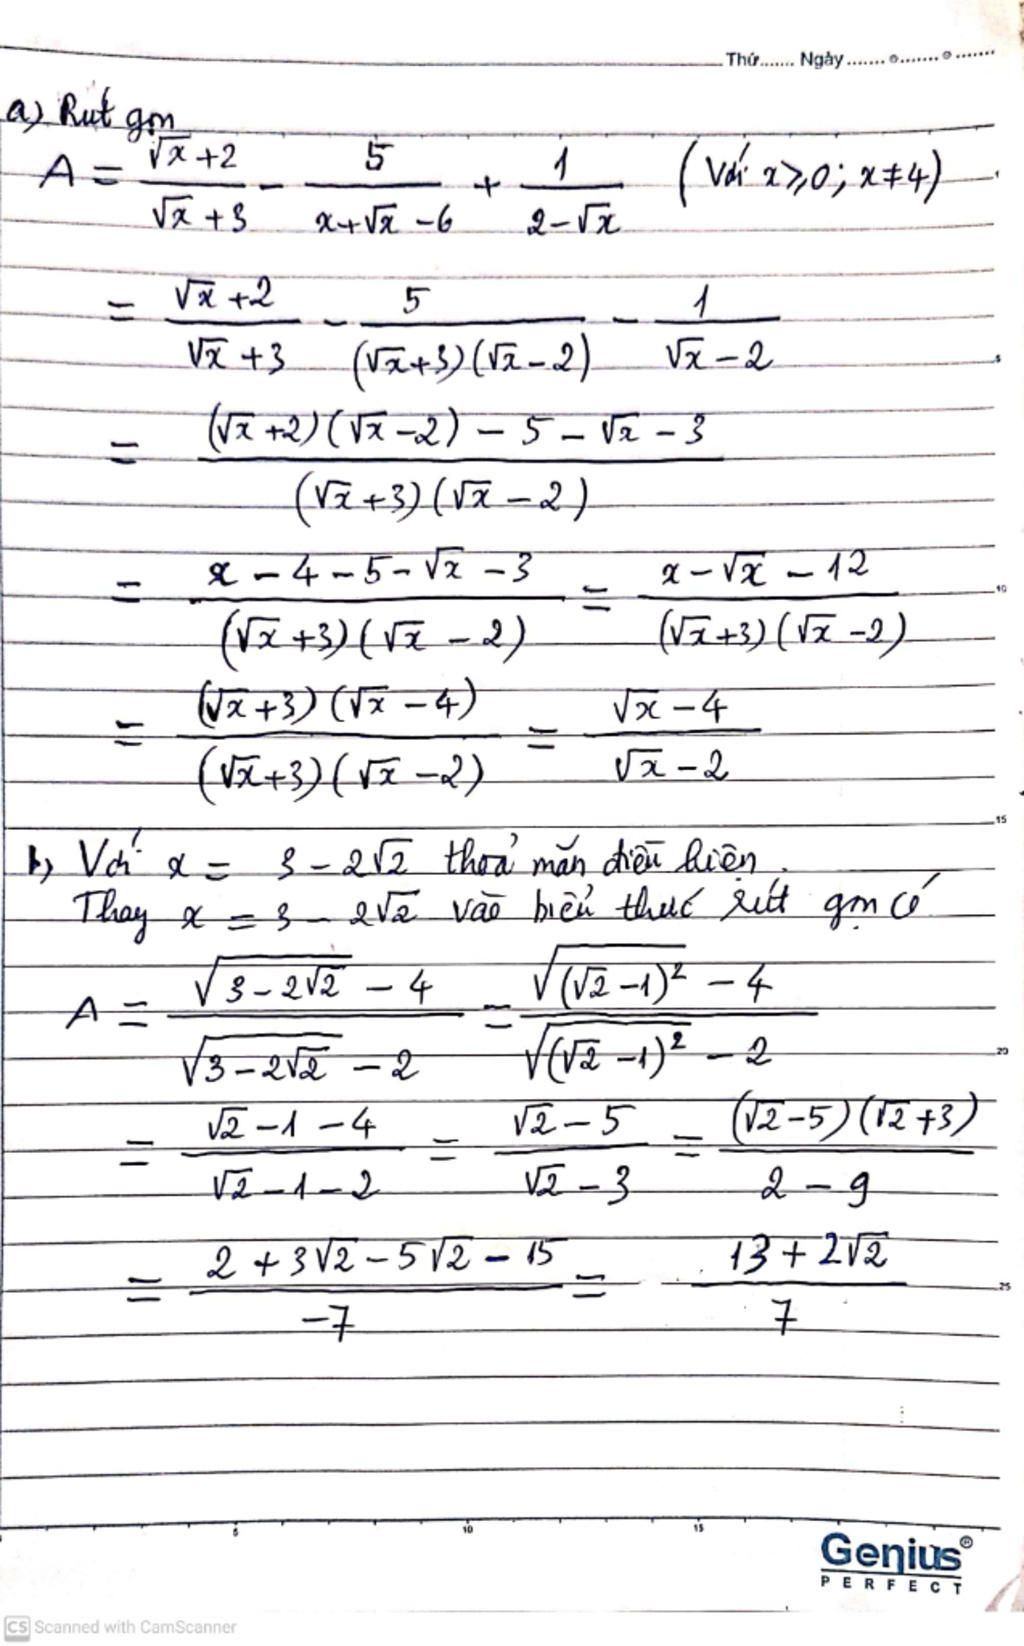 Thứ....... Ngày.......
a) Rút gọn
A = (√x + 2)/(√x + 3) - 5/(x + √x - 6) + 1/(2 - √x) (Với x ≥ 0; x ≠ 4)
= (√x + 2)/(√x + 3) - 5/((√x + 3)(√x - 2)) - 1/(√x - 2)
= ((√x + 2)(√x - 2) - 5 - √x - 3)/((√x + 3)(√x - 2))
= (x - 4 - 5 - √x - 3)/((√x + 3)(√x - 2)) = (x - √x - 12)/((√x + 3)(√x - 2))
= ((√x + 3)(√x - 4))/((√x + 3)(√x - 2)) = (√x - 4)/(√x - 2)
b) Với x = 3 - 2√2 thoả mãn điều kiện.
Thay x = 3 - 2√2 vào biểu thức rút gọn có
A = (√(3 - 2√2) - 4)/(√(3 - 2√2) - 2) = (√((√2 - 1)²) - 4)/(√((√2 - 1)²) - 2)
= (√2 - 1 - 4)/(√2 - 1 - 2) = (√2 - 5)/(√2 - 3) = ((√2 - 5)(√2 + 3))/(2 - 9)
= (2 + 3√2 - 5√2 - 15)/(-7) = (13 + 2√2)/7
5 10 15
5
10
15
20
25
Genius®
PERFECT
CS Scanned with CamScanner